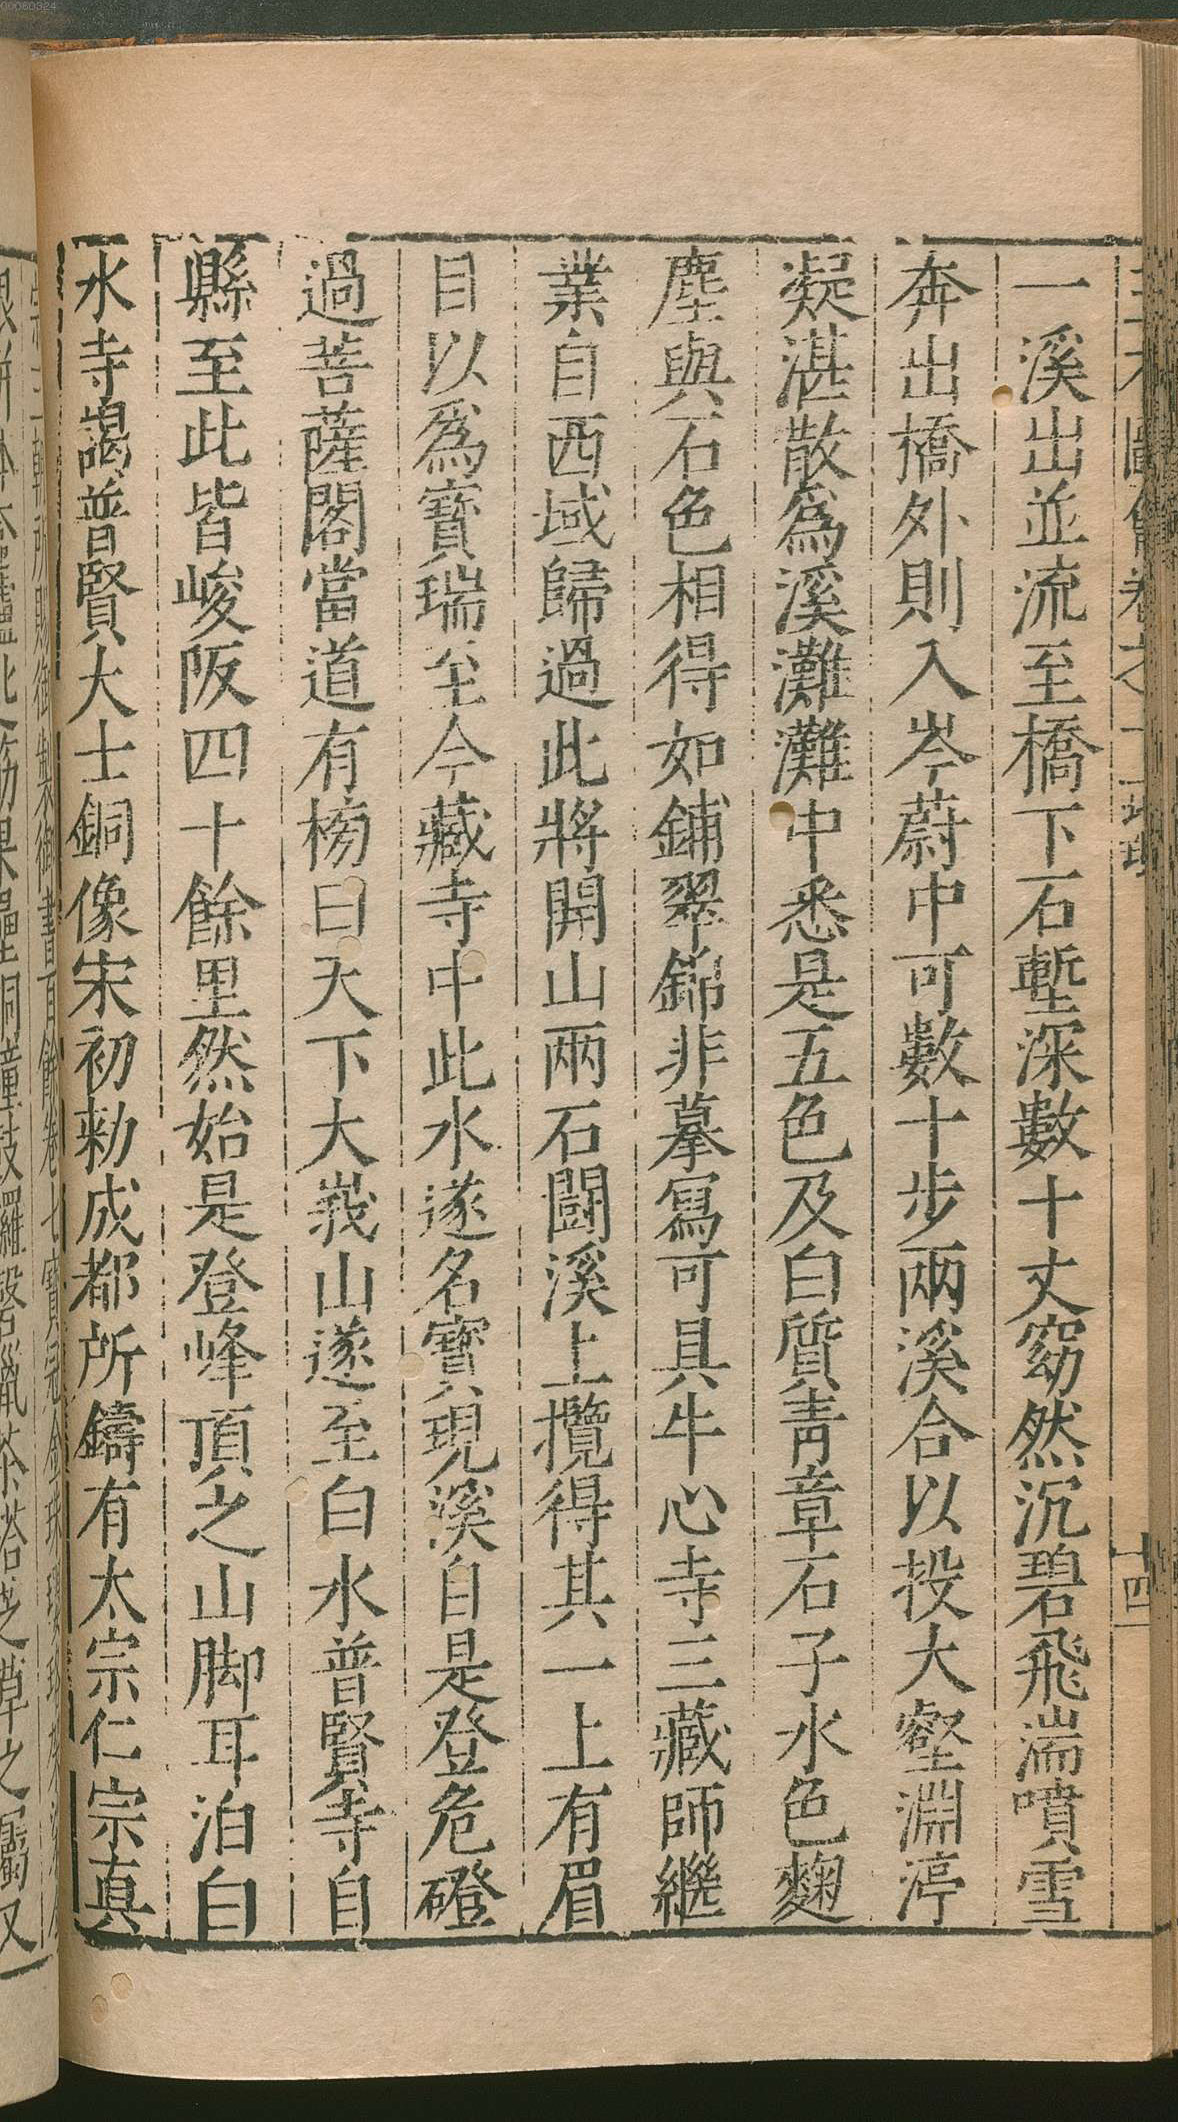 一溪出並流至橋下石塹深數十丈窈然沉碧飛湍噴雪
奔出橋外則入岑蔚中可數十步兩溪合以投大壑淵渟
凝湛散爲溪灘灘中悉是五色及白質青章石子水色麴
塵與石色相得如鋪翠錦非摹寫可具牛心寺三藏師繼
業自西域歸過此將開山兩石鬪溪上攬得其一上有眉
目以爲寶瑞至今藏寺中此水遂名寶現溪自是登危磴
過菩薩閣當道有榜曰天下大峩山遂至白水普賢寺自
縣至此皆峻阪四十餘里然始是登峰頂之山脚耳泊白
水寺謁普賢大士銅像宋初勅成都所鑄有太宗仁宗真
00060324